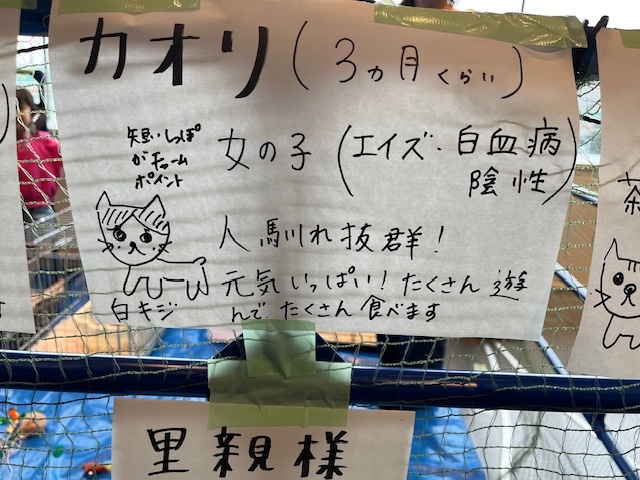 カオリ(3ヵ月くらい)
短いしっぽ
がチャーム
ポイント
女の子(エイズ・白血病
陰性)
人馴れ抜群!
元気いっぱい!たくさん遊
んで、たくさん食べます
白キジ
里親様
茶